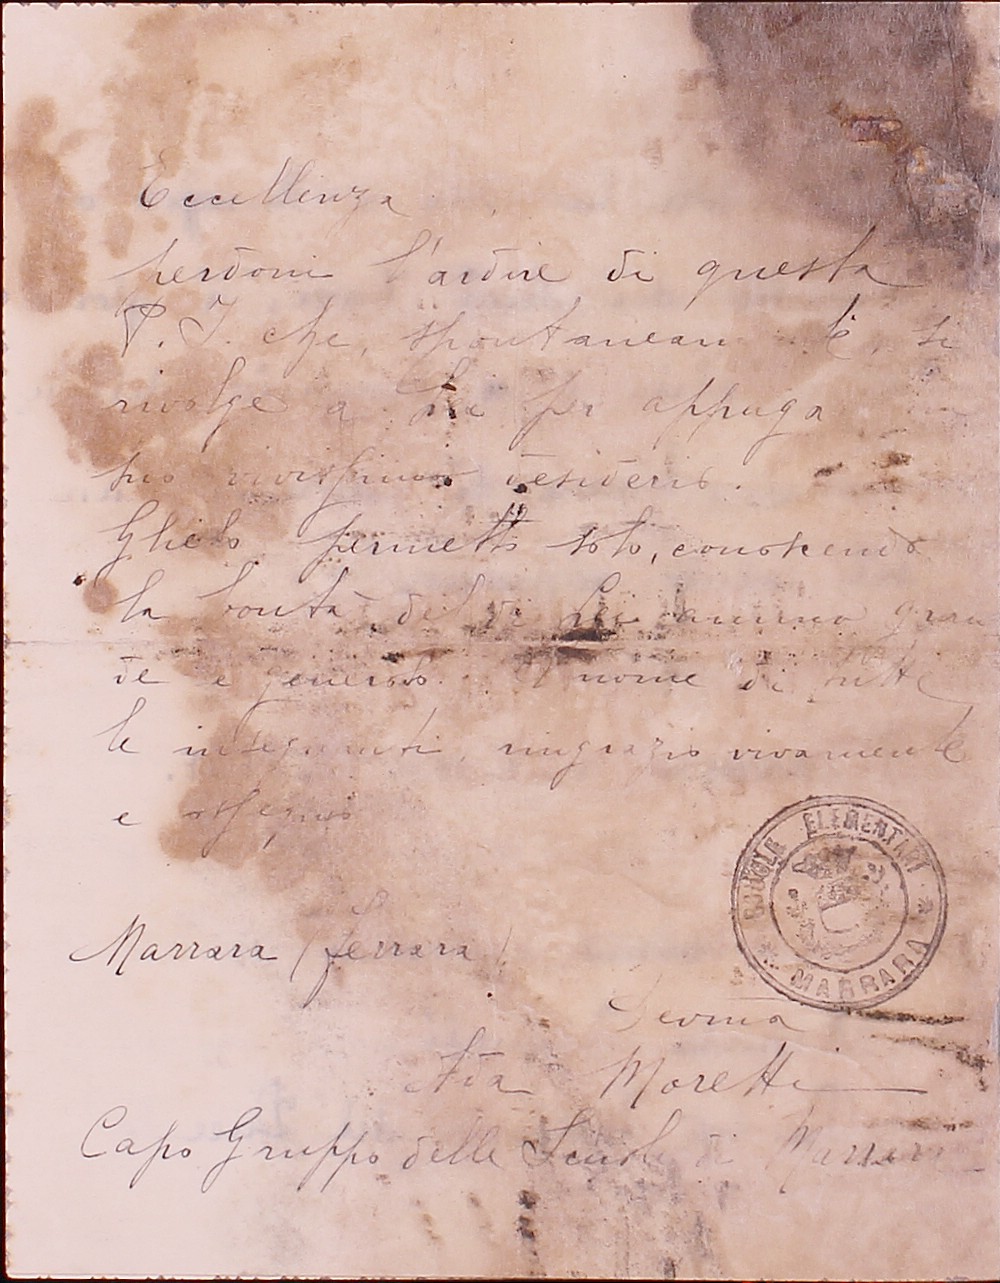 Eccellenza
perdoni l'ardire di questa
P. I. che, spontaneam te, si
rivolge a Lei per appaga
suo vivissimo desiderio.
Glielo permetto solo, conoscendo
la bontà del di Lei animo gran
de e generoso. A nome di tutte
le insegnanti, ringrazio vivamente
e ossequio
SCUOLE ELEMENTARI
* MARRARA *
Marrara (Ferrara)
Devma
Ada Moretti
Capo Gruppo delle Scuole di Marrara